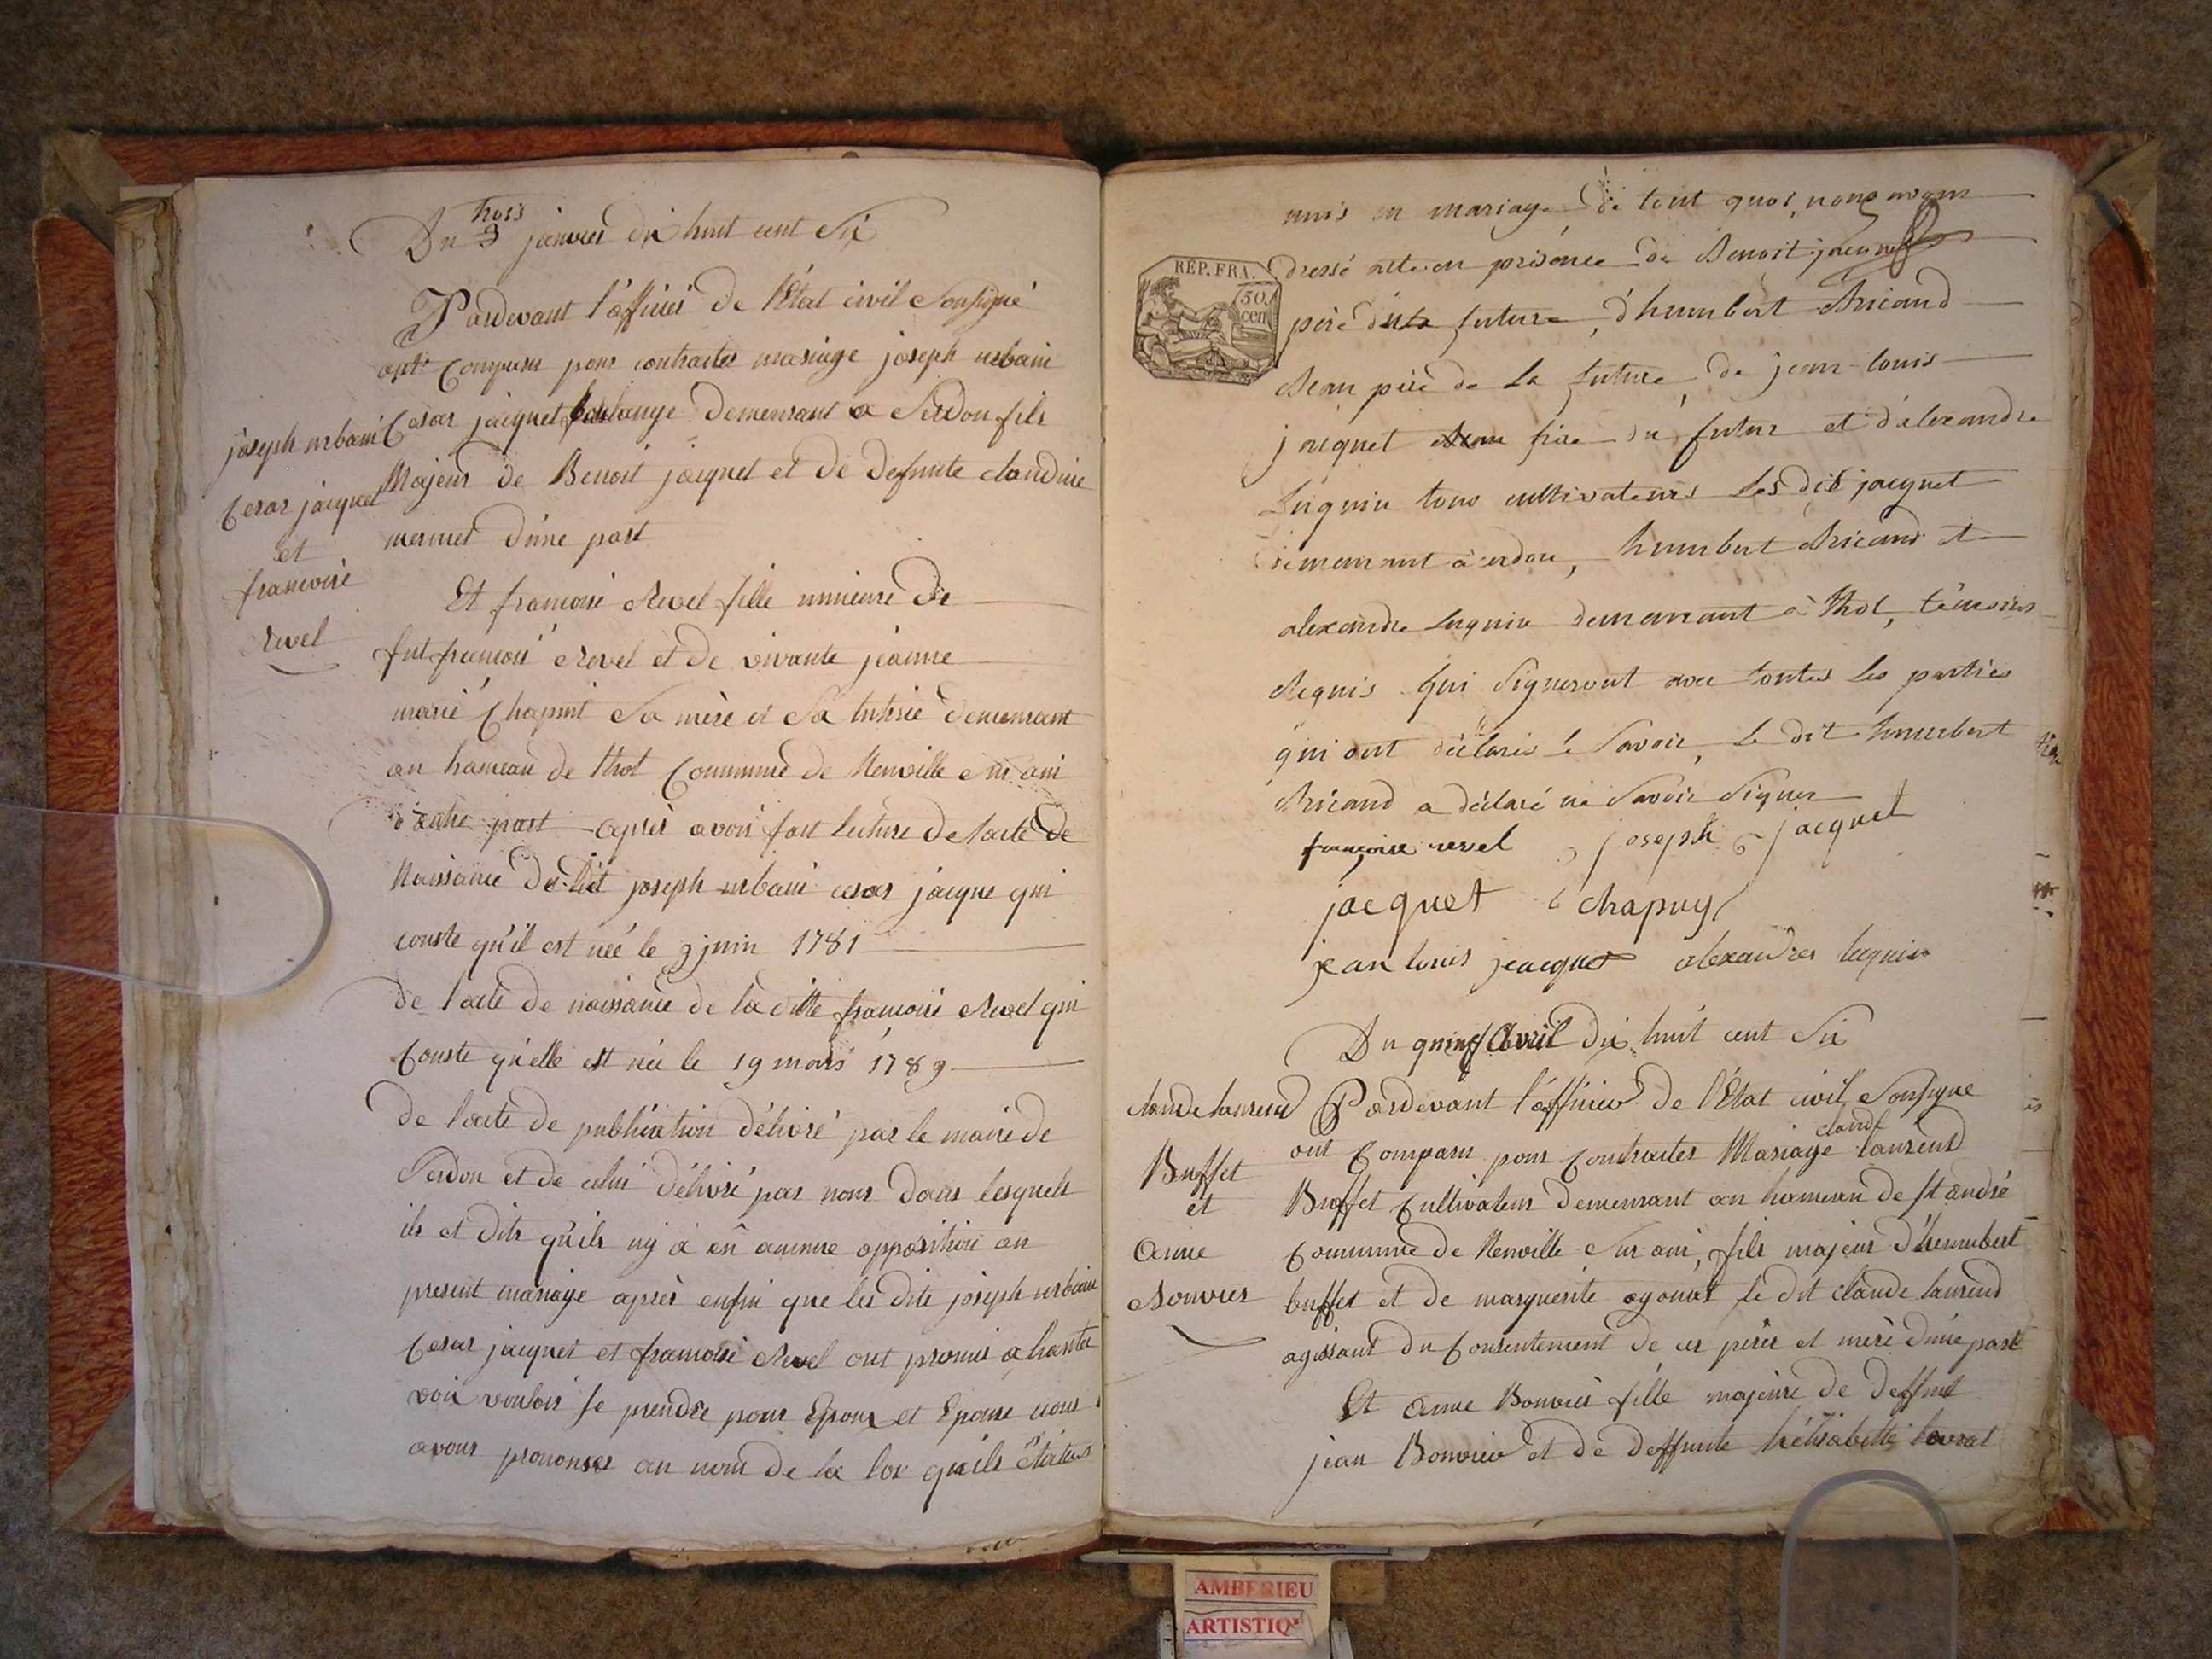 Du trois janvier dix huit cent Six
Pardevant l'officier de l'Etat civil Soussigné
ont Comparu pour contracter mariage joseph urbain
Cesar jacquet demeurant a Cerdon fils
Majeur de Benoit jacquet et de defunte claudine
mermet d'une part
joseph urbain
Cesar jacquet
et
francoise
Revel
Et francoise Revel fille mineure de
fut francois Revel et de vivante jeanne
marie Chapuit Sa mère et Sa tutrice demeurant
au hameau de thol Commune de Neuville Sur ain
d'autre part après avoir fait lecture de l'acte de
Naissance du dit joseph urbain cesar jacque qui
conste qu'il est née le 9 juin 1781
de l'acte de naissance de la ditte francoise Revel qui
Conste qu'elle est née le 19 mars 1789
de l'acte de publication délivré par le maire de
Cerdon et de celui délivré par nous dans lesquels
ils et dits qu'ils ny à en aucune opposition au
present mariage après enfin que les dits joseph urbain
Cesar jacquet et francoise Revel ont promis a haute
voix voulois se prendre pour Epoux et Epouse nous
avons prononcer au nom de la loi qu'ils étaites
unis en mariage de tout quoi, nous avons
RÉP. FRA.
50.
cen
dressé acte en présence de Benoit jacquet
père du future, d'humbert Bricand
Beau père de la future, de jean-louis
jacquet frère du futur et d'alexandre
Luquin tous cultivateurs les dit jacquet
demeurant à cerdon, humbert Bricand et
alexandre Luquin demeurant à thol, témoins
Requis qui Signeront avec toutes les parties
qui ont déclarés le Savoir, le dit humbert
Bricand a déclaré ne Savoir Signer
françoise revel joseph jacquet
jacquet chapuy
jean louis jeacquet alexandre luquin
Du quinze avril dix huit cent Six
claude laurend
Buffet
et
Anne
Bonvier
Pardevant l'officier de l'Etat civil Soussigne
ont Comparu pour Contracter Mariage claude laurend
Buffet Cultivateur demeurant au hameau de st andré
Commune de Neuville Sur ain, fils majeur d'humbert
buffet et de marguerite le dit claude laurend
agissant du Consentement de ces pères et mère d'une part
Et anne Bonvier fille majeure de deffunt
jean Bonvier et de deffunte hélisabette
AMBERIEU
ARTISTIQ